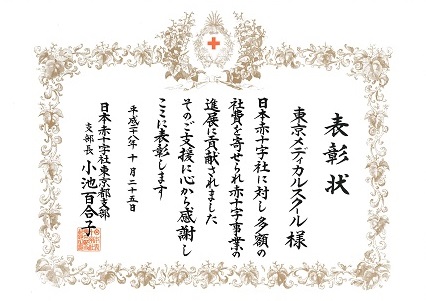 表彰状
東京メディカルスクール 様
日本赤十字社に対し多額の
社費を寄せられ赤十字事業の
進展に貢献されました
そのご支援に心から感謝し
ここに表彰します
平成二十八年 十月 二十五日
日本赤十字社東京都支部
支部長 小池百合子